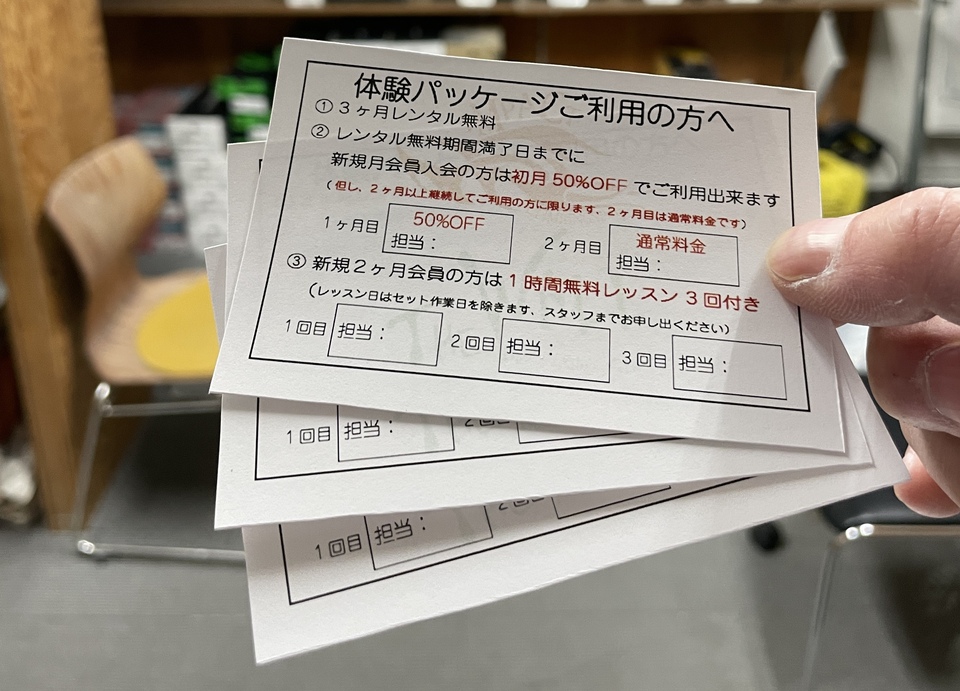 体験パッケージご利用の方へ
① 3ヶ月レンタル無料
② レンタル無料期間満了日までに
新規月会員入会の方は初月 50%OFF でご利用出来ます
(但し、2ヶ月以上継続してご利用の方に限ります、2ヶ月目は通常料金です)
1ヶ月目 50%OFF 担当： 2ヶ月目 通常料金 担当：
③ 新規2ヶ月会員の方は 1時間無料レッスン 3回付き
(レッスン日はセット作業日を除きます、スタッフまでお申し出ください)
1回目 担当： 2回目 担当： 3回目 担当：
1回目 担当： 2回目
1回目 担当： 2回目